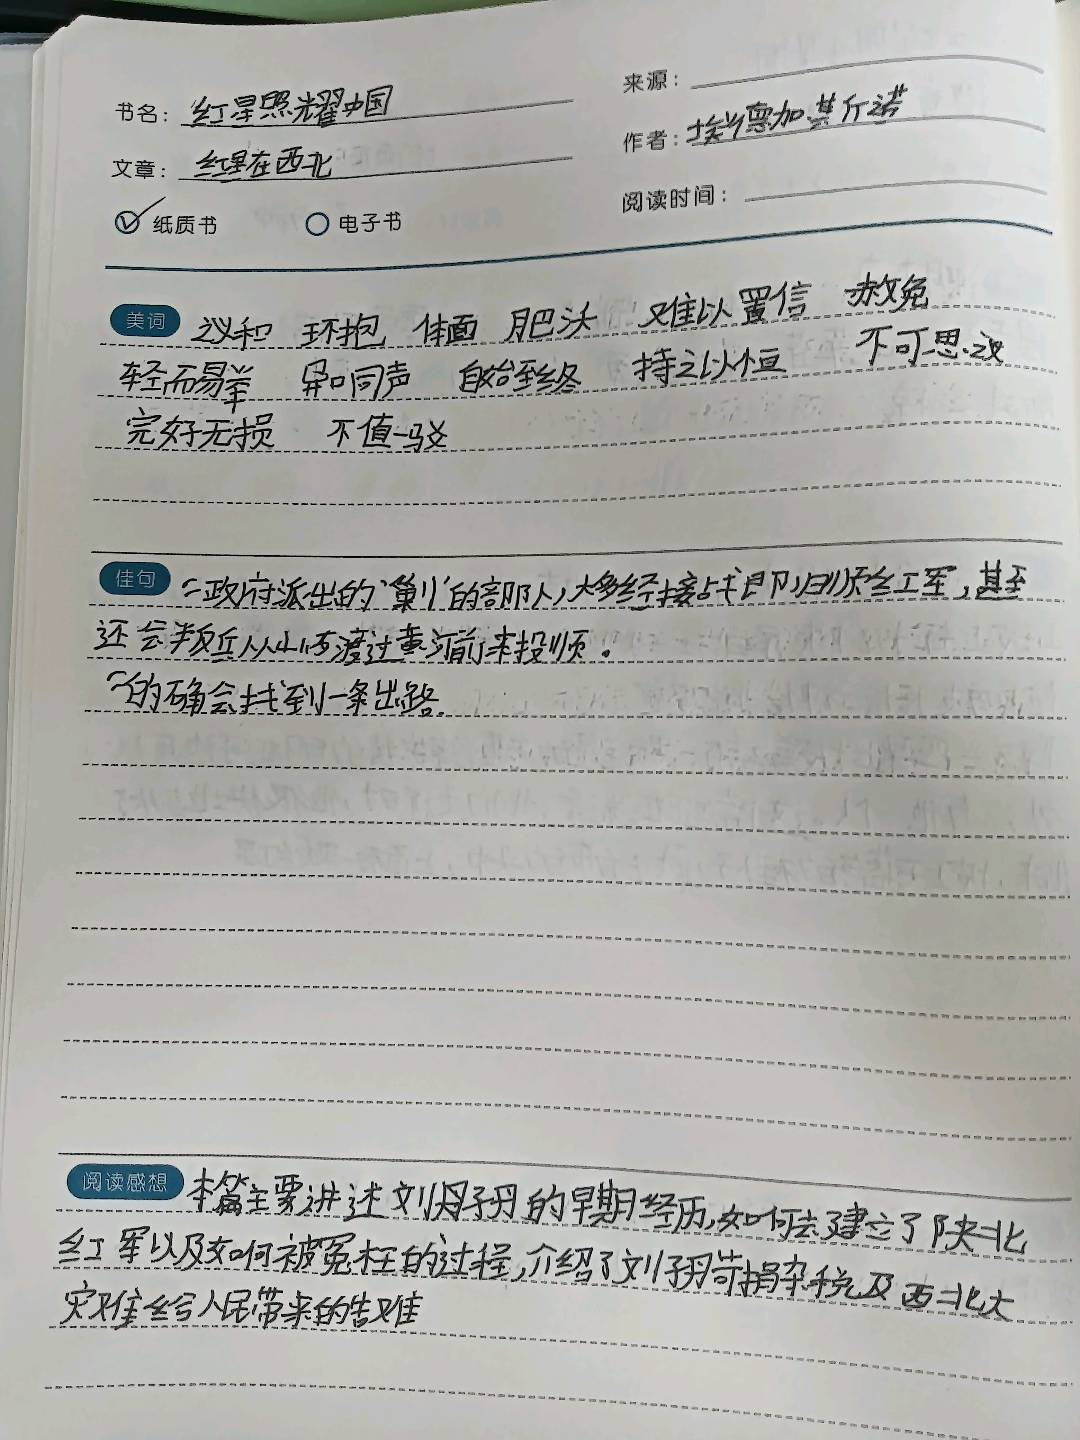 书名：红星照耀中国
来源：
文章：红星在西北
作者：埃德加其斤诺
纸质书 电子书
阅读时间：
美词 议和 环抱 体面 肥沃 难以置信 赦免
轻而易举 异口同声 自始至终 持之以恒 不可思议
完好无损 不值一驳
佳句 政府派出的“剿”的部队，大多经接战即归顺红军，甚至
还会叛兵从山西渡过黄河前来投顺。
的确会找到一条出路。
阅读感想 本篇主要讲述刘子丹的早期经历，如何去建立了陕北
红军以及如何被冤枉的过程，介绍了刘子丹苛捐杂税及西北大
灾难给人民带来的苦难